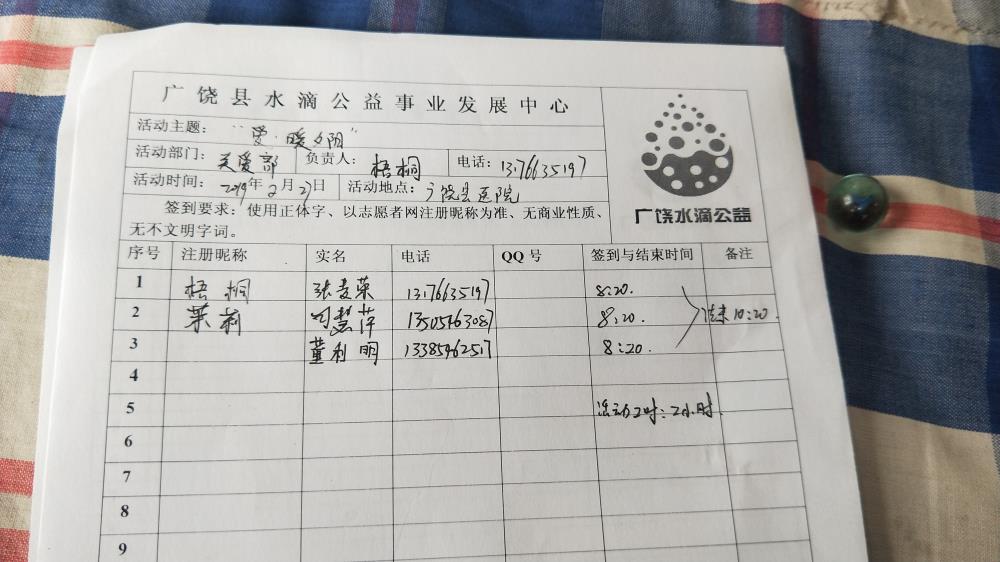 广饶县水滴公益事业发展中心
活动主题：“爱·暖夕阳”
活动部门：关爱部 负责人：梧桐 电话：13176635197
活动时间：2019年2月27日 活动地点：广饶县医院
签到要求：使用正体字、以志愿者网注册昵称为准、无商业性质、
无不文明字词。
广饶水滴公益
序号 注册昵称 实名 电话 QQ号 签到与结束时间 备注
1 梧桐 张麦荣 13176635197 8:20.
2 茉莉 慧萍 13505463087 8:20. 结束10:20.
3 董利明 13385462517 8:20.
4
5 活动2时：2小时.
6
7
8
9